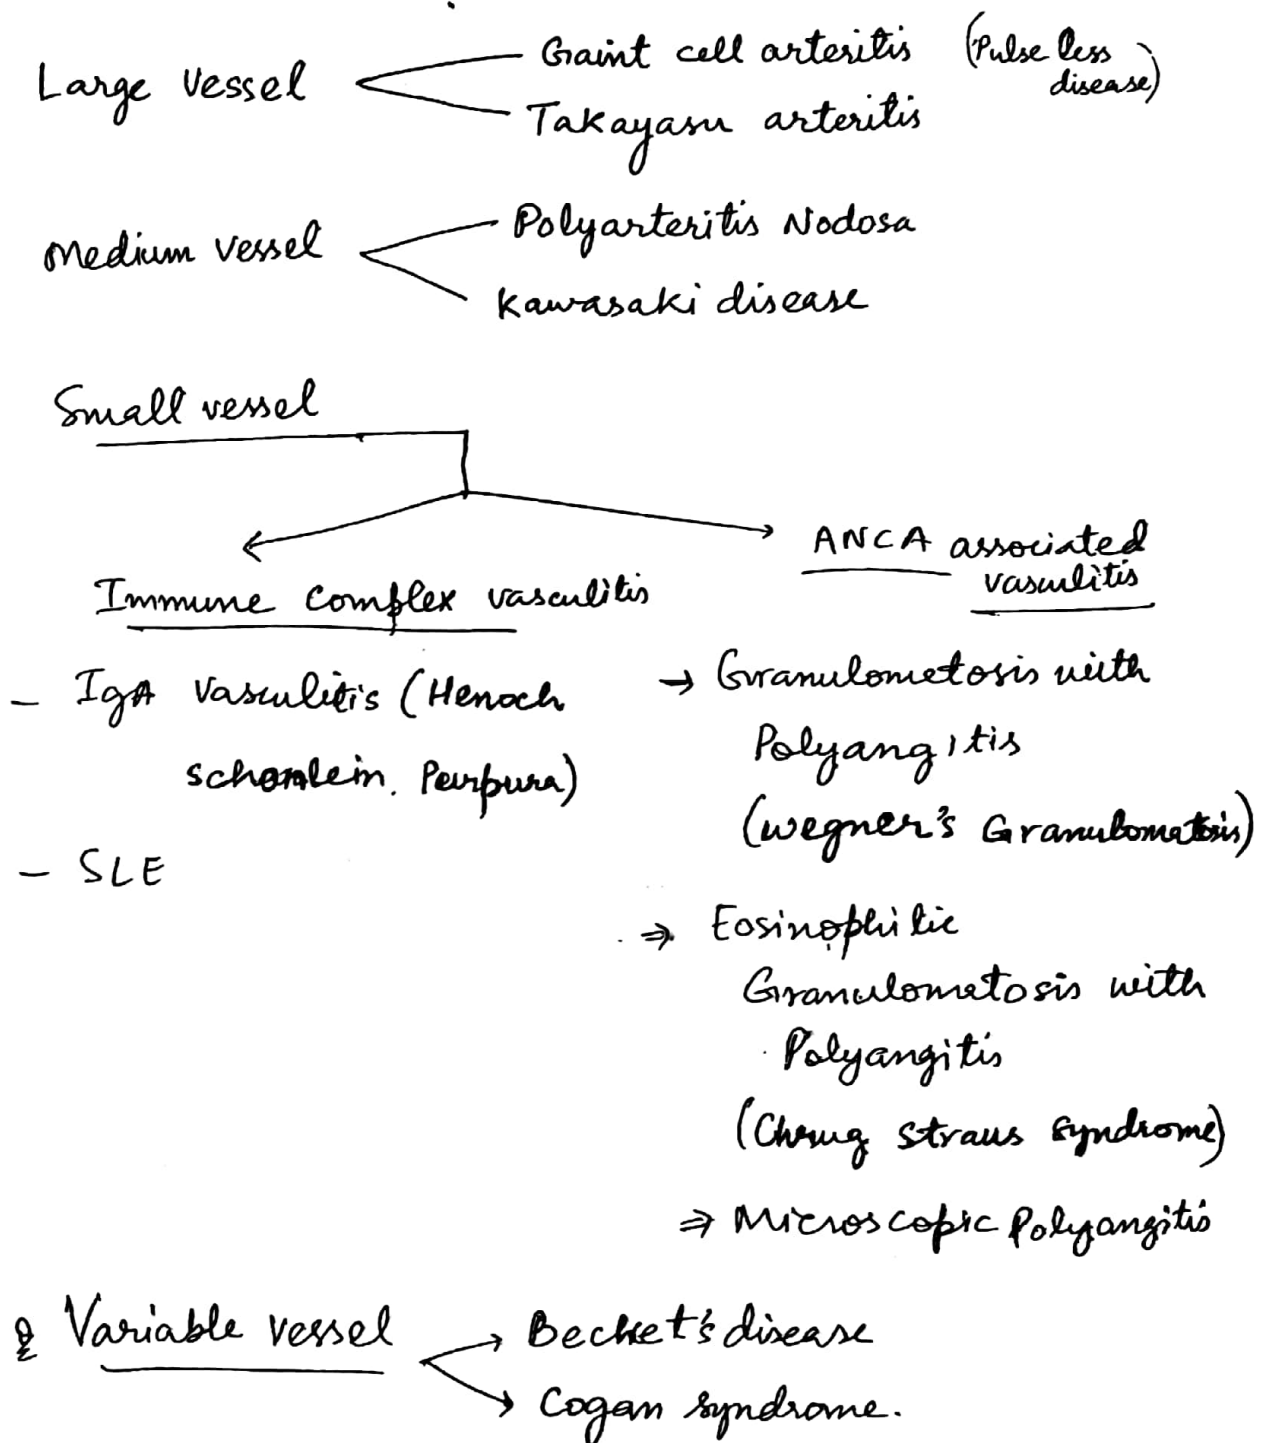 Large vessel
Gaint cell arteritis (Pulse less disease)
Takayasu arteritis
Medium vessel
Polyarteritis Nodosa
Kawasaki disease
Small vessel
ANCA associated vasculitis
Immune complex vasculitis
- IgA vasculitis (Henoch
schonlein. Purpura)
- SLE
→ Granulometosis with
Polyangitis
(wegner's Granulomatosis)
⇒ Eosinophilic
Granulometosis with
Polyangitis
(Chrug straus syndrome)
⇒ Microscopic Polyangitis
Variable vessel
Bechet's disease
Cogan syndrome.